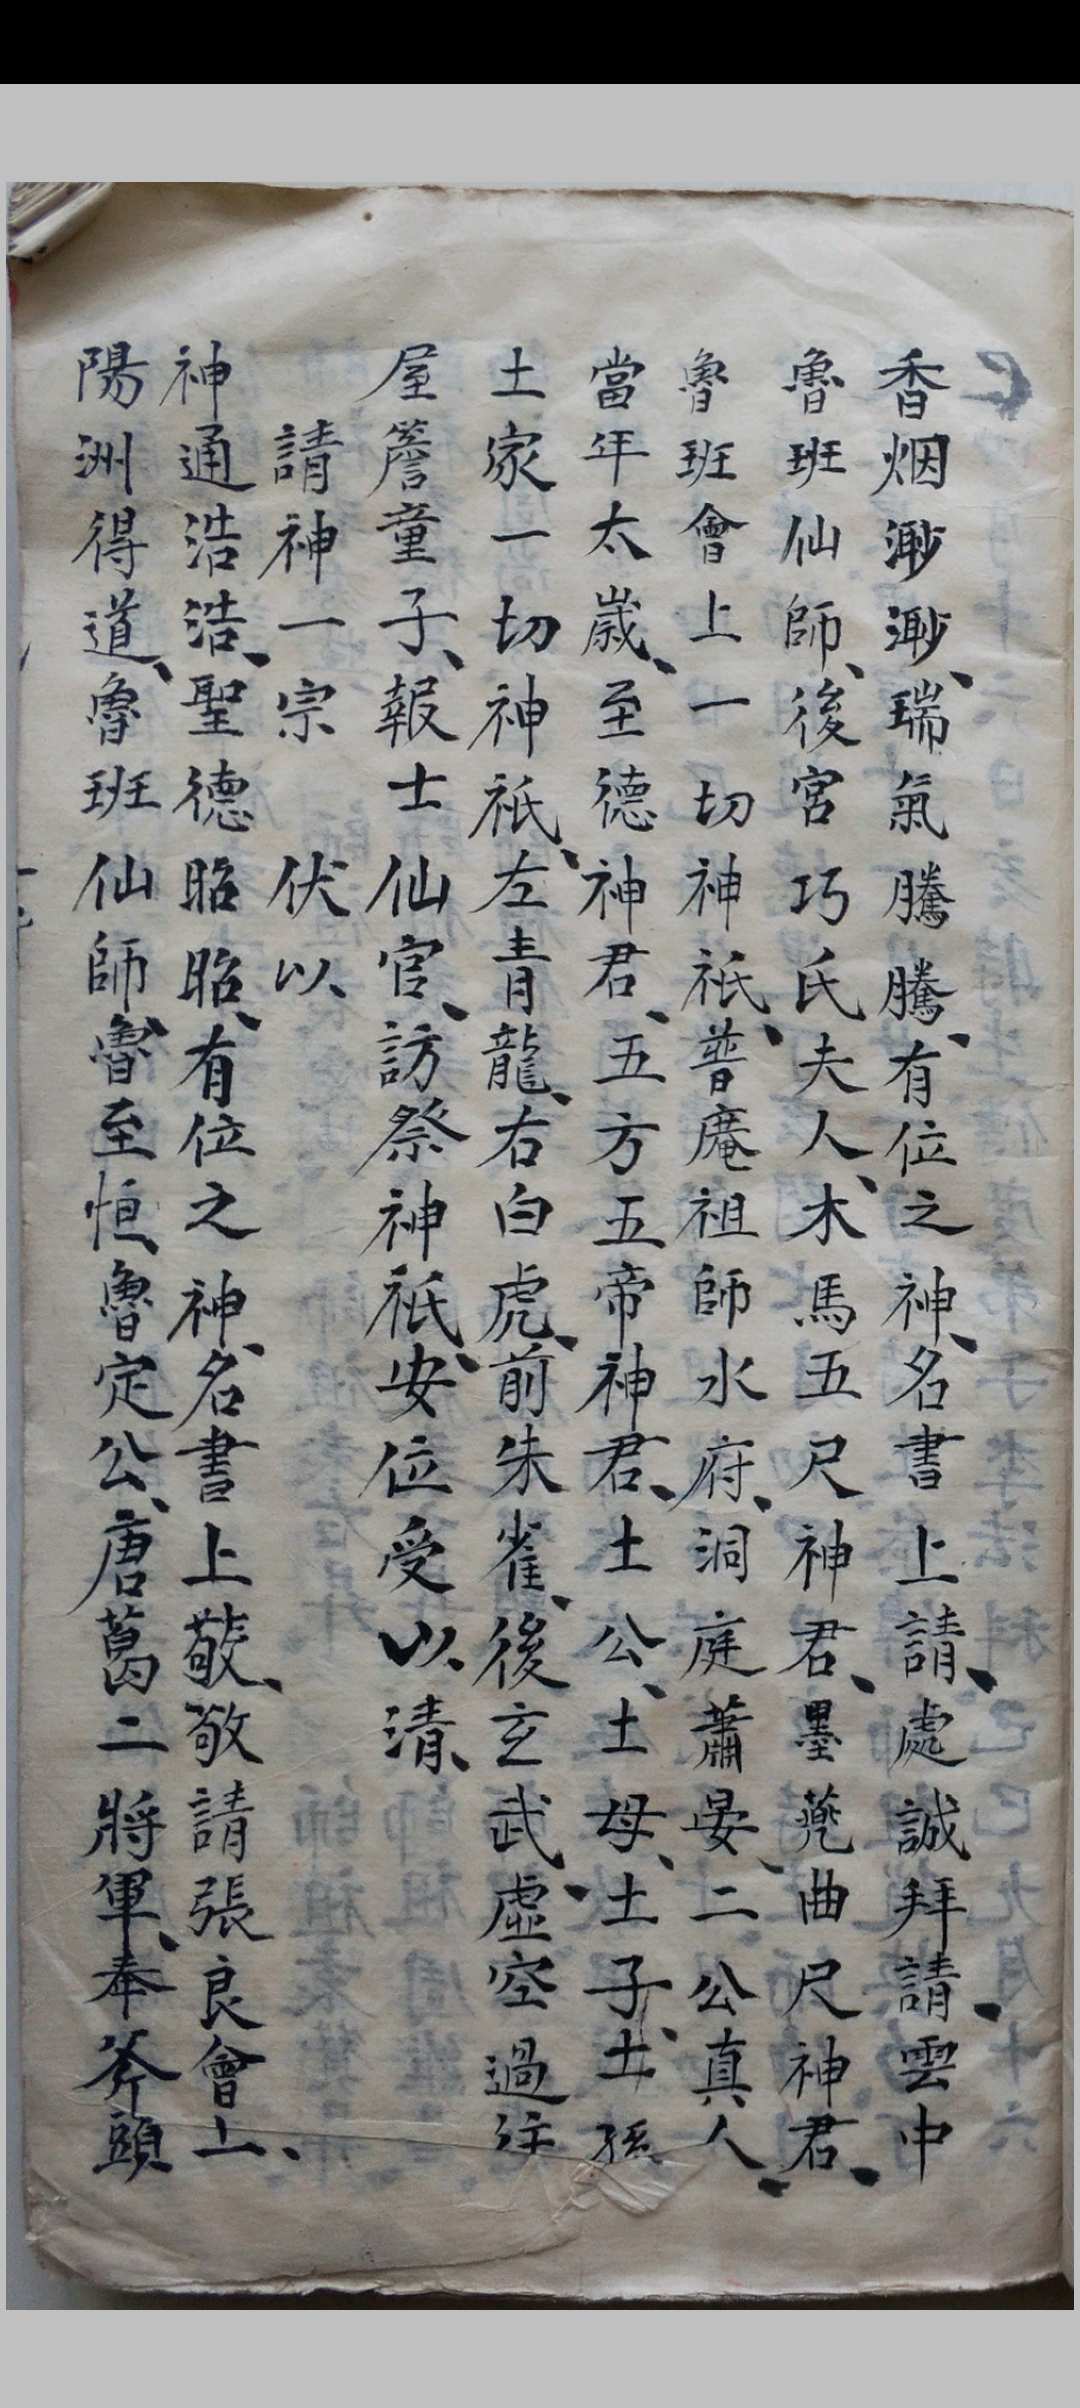 香烟渺渺、瑞氣騰騰、有位之神、名書上請、處誠拜請、雲中
魯班仙師、後宮巧氏夫人、木馬五尺神君、墨兠曲尺神君、
魯班會上一切神祇、普庵祖師水府、洞庭蕭晏、二公真人、
當年太歲、至德神君、五方五帝神君、土公、土母、土子、土孫
土家一切神祇、左青龍、右白虎、前朱雀、後玄武、虛空過往
屋簷童子、報士仙官、訪祭神祇、安位受以清、
請神一宗 伏以、
神通浩浩、聖德昭昭、有位之神、名書上敬、敬請張良會上、
陽洲得道、魯班仙師、魯至恒、魯定公、唐葛二將軍、奉斧頭